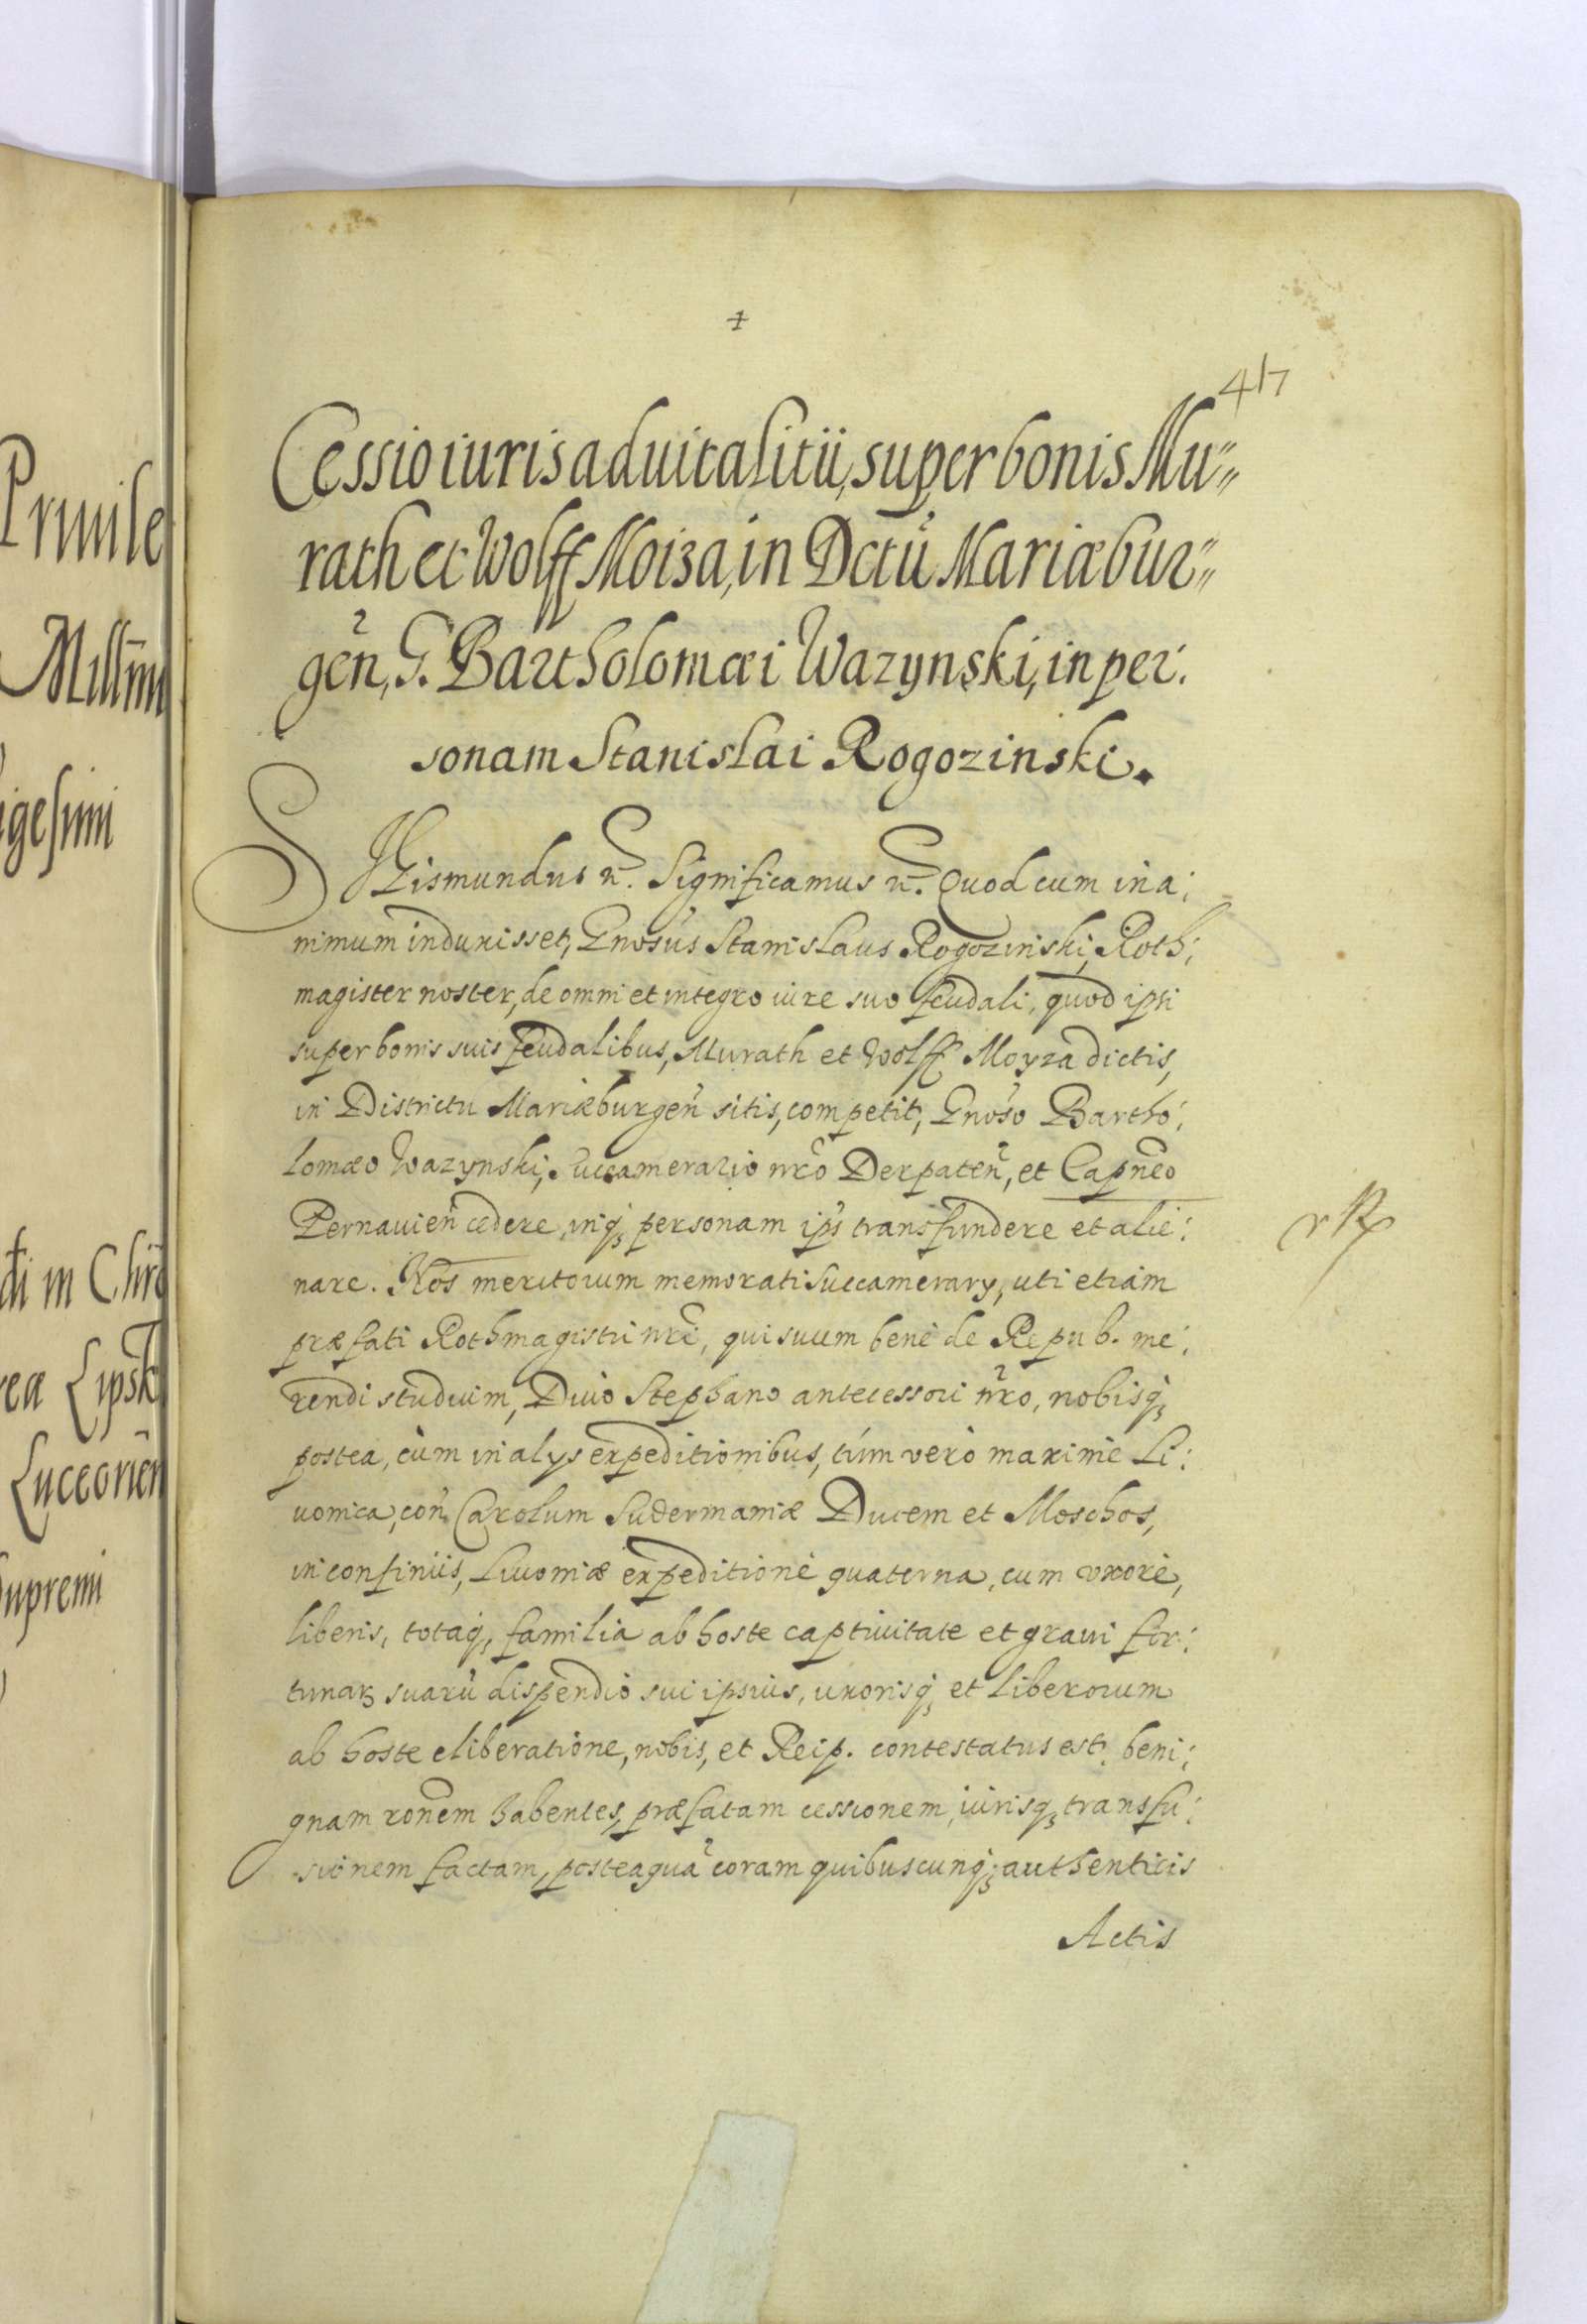 417
Cessio iuris aduitalitii, super bonis Mu„
rath et Wolff Moiza, in Dctu Mariæbur„
gen̄, G. Bartholomæi Wazynski, in per:
sonam Stanislai Rogozinski.
SIgismundus etc. Significamus etc. Quod cum in a:
nimum induxisset, Gnosus Stanislaus Rogozinski, Roth:
magister noster, de omni et integro iure suo feudali, quod ipsi
super bonis suis feudalibus, Murath et Wolff Moyza dictis,
in Districtu Mariæburgen̄ sitis, competit, Gnoso Bartho:
lomæo Wazynski, Succamerario nr̄o Derpaten̄, et Capn̄eo
Pernauien̄ cedere, inq₃ personam ip̄s transfundere et alie:
nare. Nos meritorum memorati Succamerary, uti etiam
præfati Rothmagistri nr̄i, qui suum bene de Repub. me:
rendi studium, Diuo Stephano antecessori nr̄o, nobisq₃
postea, cùm in alys expeditionibus, tùm verò maximè Li:
uonica, con̄ Carolum Sudermaniæ Ducem et Moschos,
in confiniis, Liuoniæ expeditione quaterna, cum uxore,
liberis, totaq₃ familia ab hoste captiuitate et graui for:
tunaꝝ suarū dispendio sui ipsius, uxorisq₃ et liberorum
ab hoste eliberatione, nobis, et Reip. contestatus est: beni:
gnam ron̄em habentes, præfatam cessionem, iurisq₃ transfu:
sionem factam, posteaquā coram quibuscunq₃ authenticis
Actis
Priuile
igesimi
in Chr̄o
Lipsk
Luceorien̄
Supremi